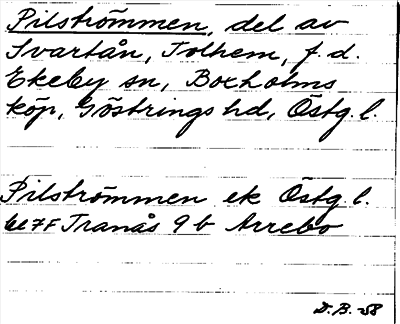 Pilströmmen, del av
Svartån, Tolhem, f.d.
Ekeby sn, Boxholms
köp, Göstrings hd, Östg. l.
Pilströmmen ek Östg. l.
bl 7F Tranås 9b Arrebo
D.B. -58